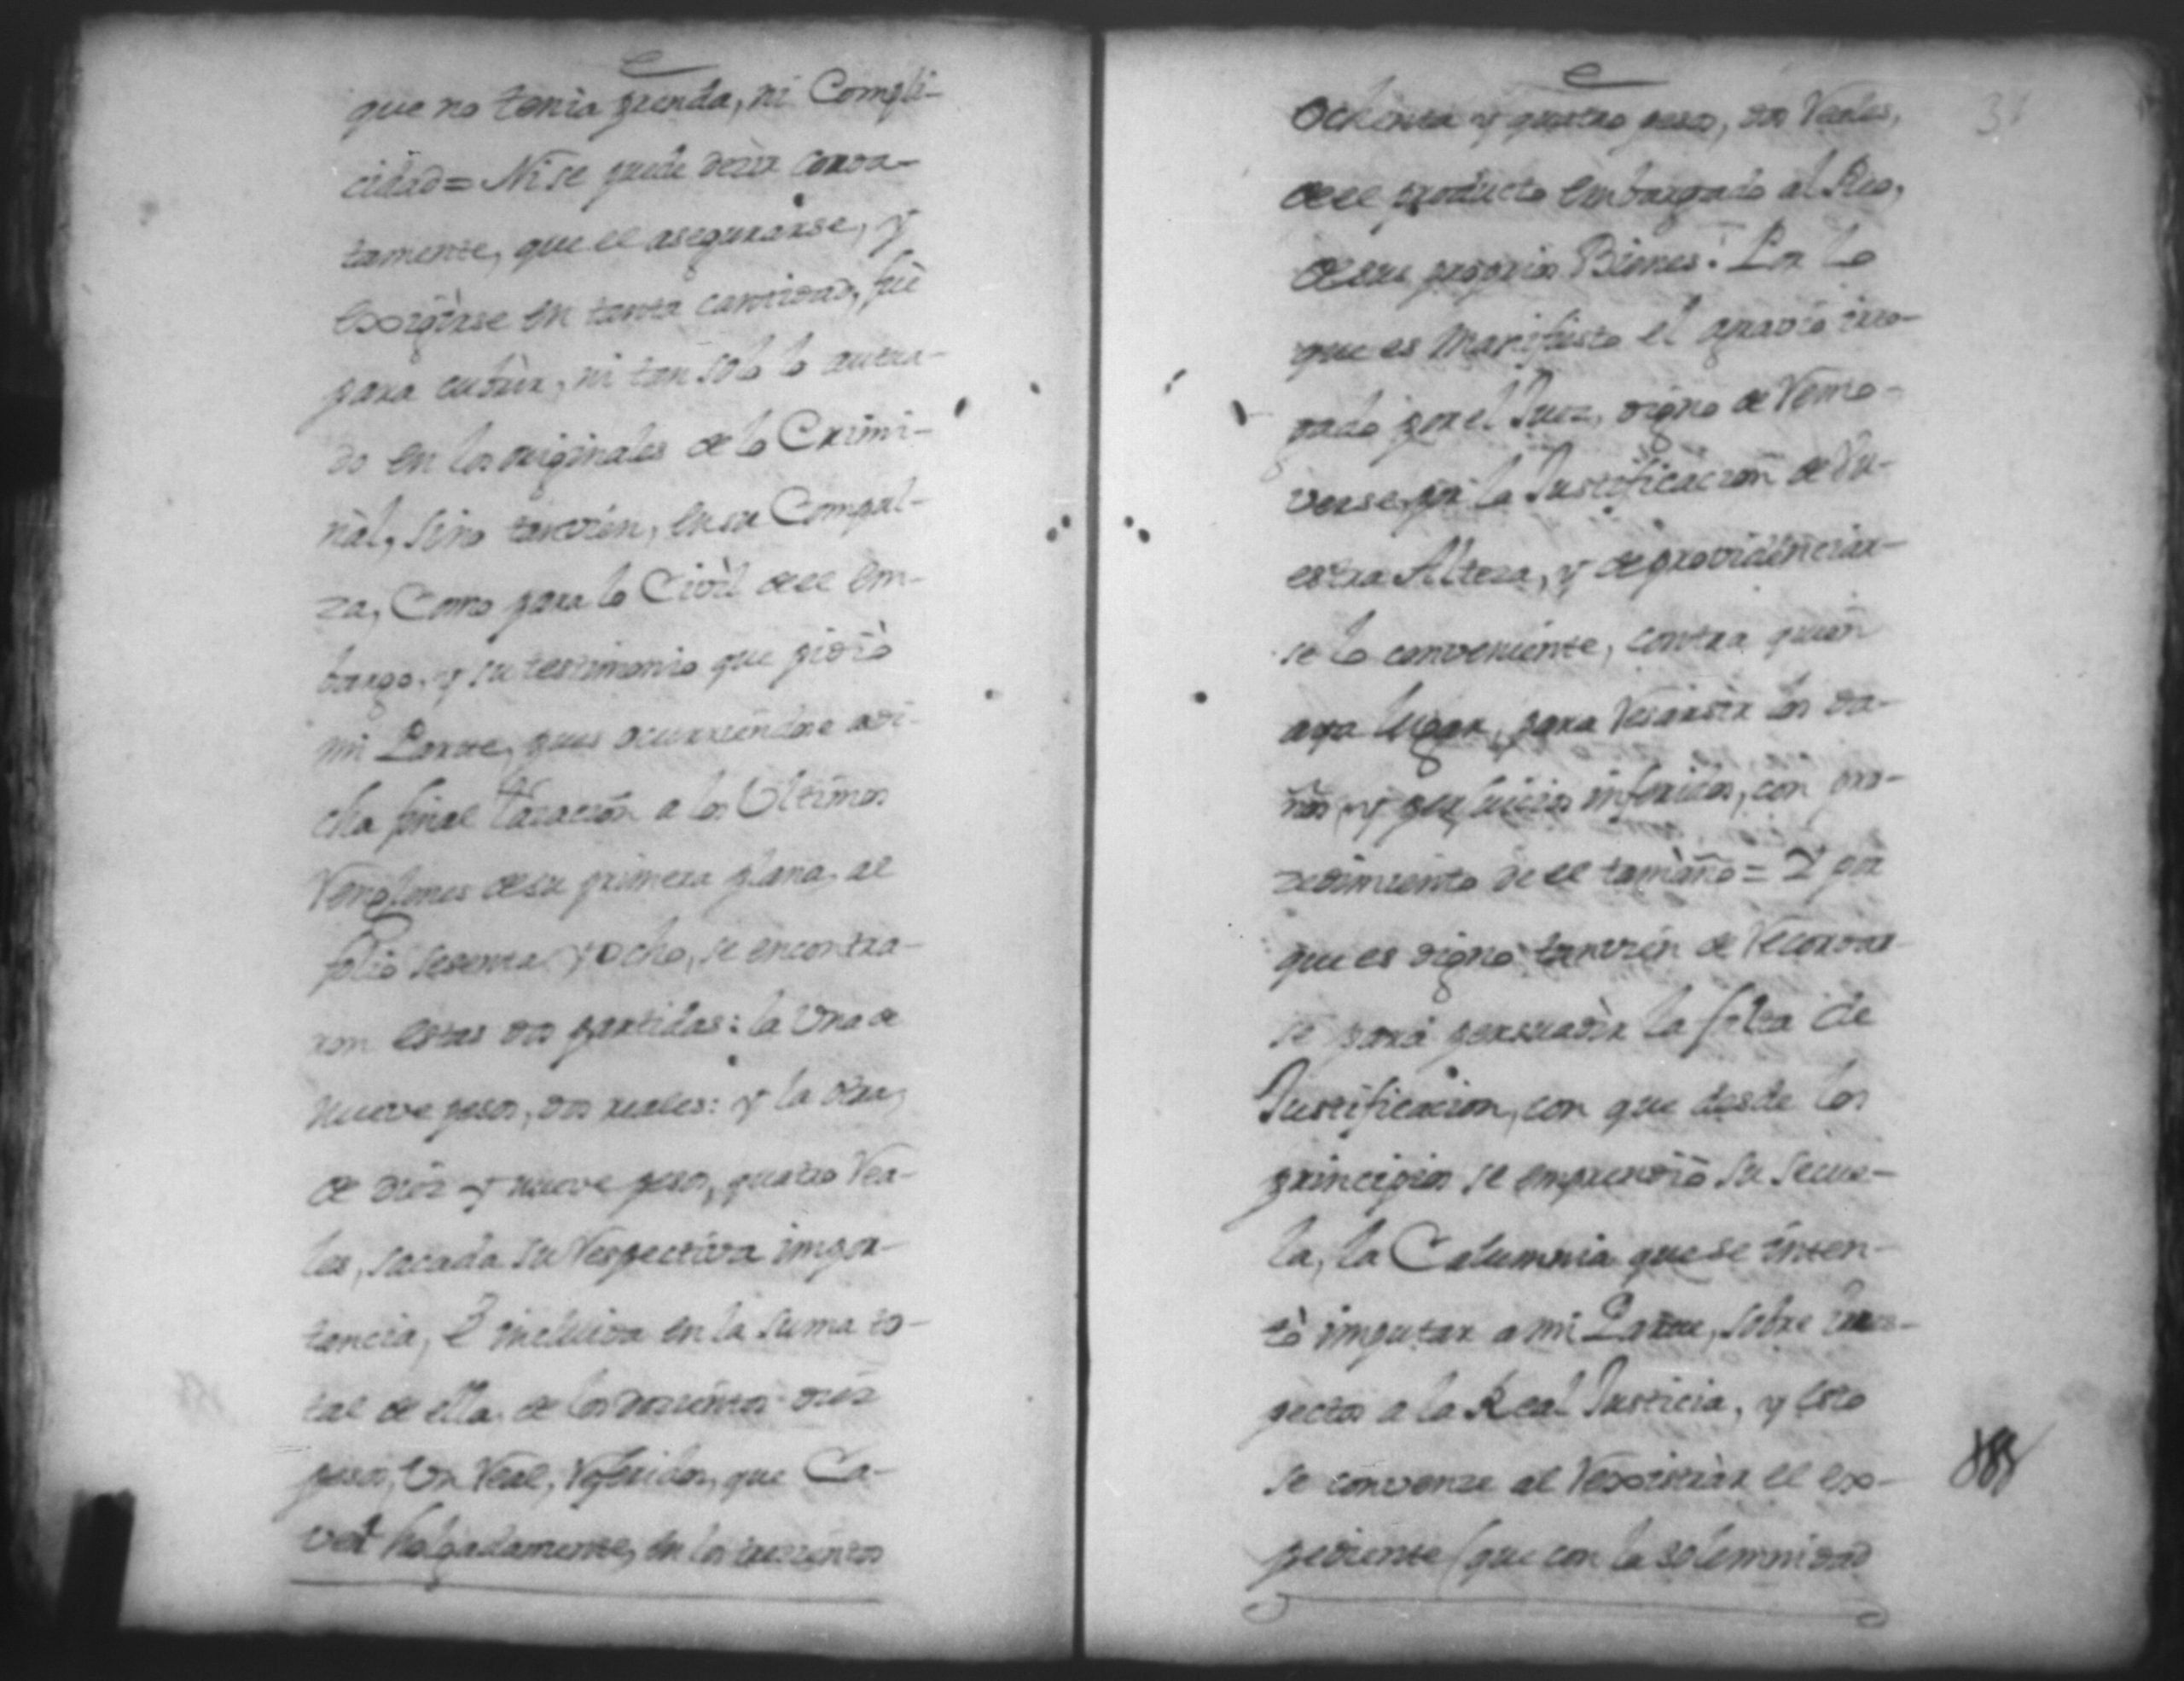 que no tenia prenda, ni Compli-
cidad = Ni se puede dezir correc-
tamente, que el asegurarse, y
exoigirse en tanta cantidad, fuè
para cubrir, ni tan solo lo autua-
do en los originales de lo Crimi-
nàl, sino tanvien, en su Compul-
za, Como para lo Civil de el em-
bargo, y su testimonio que pidiò
mi Parte, pues ocurriendose a di-
cha final tazacion a los Ultimos
Renglones de su primera plana, al
folio sesenta y ocho, se encontra-
ron estas dos partidas: la Una de
nueve pesos, dos reales: y la otra,
de diez y nueve pesos, quatro Rea-
les, sacada su Respectiva impor-
tancia, è incluida en la suma to-
tal de ella de los doscientos diez
pesos, Un Real, Referidos, que Ca-
ven holgadamente, en los trescientos
Ochenta y quatro pesos, dos Reales,
de el producto embargado al Reo,
de sus proprios Bienes: Por lo
que es manifiesto el agravio irro-
gado por el Juez, digno de Remo-
verse por la Justificacion de Vu-
estra Alteza, y de providenciar-
se lo conveniente, contra quien
aya lugar, para Resarsir los da-
ños, y perjuicios inferidos, con pro-
zedimiento de el tamaño = Y por
que es digno tanvien de Recordar
se para persuadir la falta de
Justificacion, con que desde los
principios se emprendiò su secue-
la, la Calumnia que se inten-
tò imputar a mi Parte, sobre irres-
pectos a la Real Justicia, y esto
se convenze al Rexistrar el ex-
pediente (que con la solemnidad